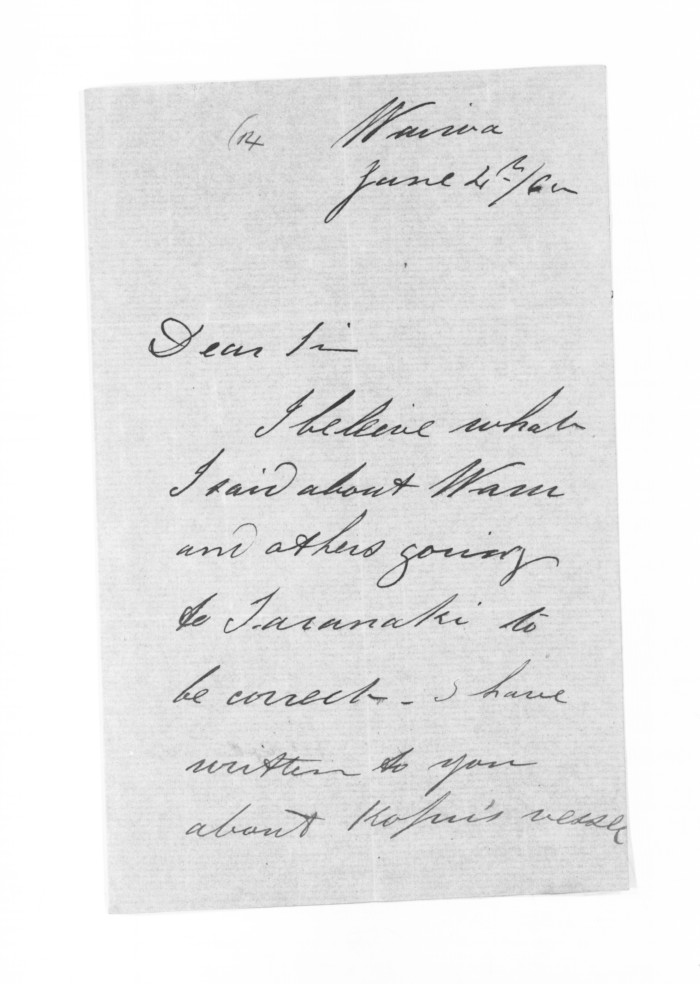 (14
Wairoa
June 4th/60
Dear Sir
I beleive what
I said about Waru
and others going
to Taranaki to
be correct - I have
written to you
about Kopu's vessel